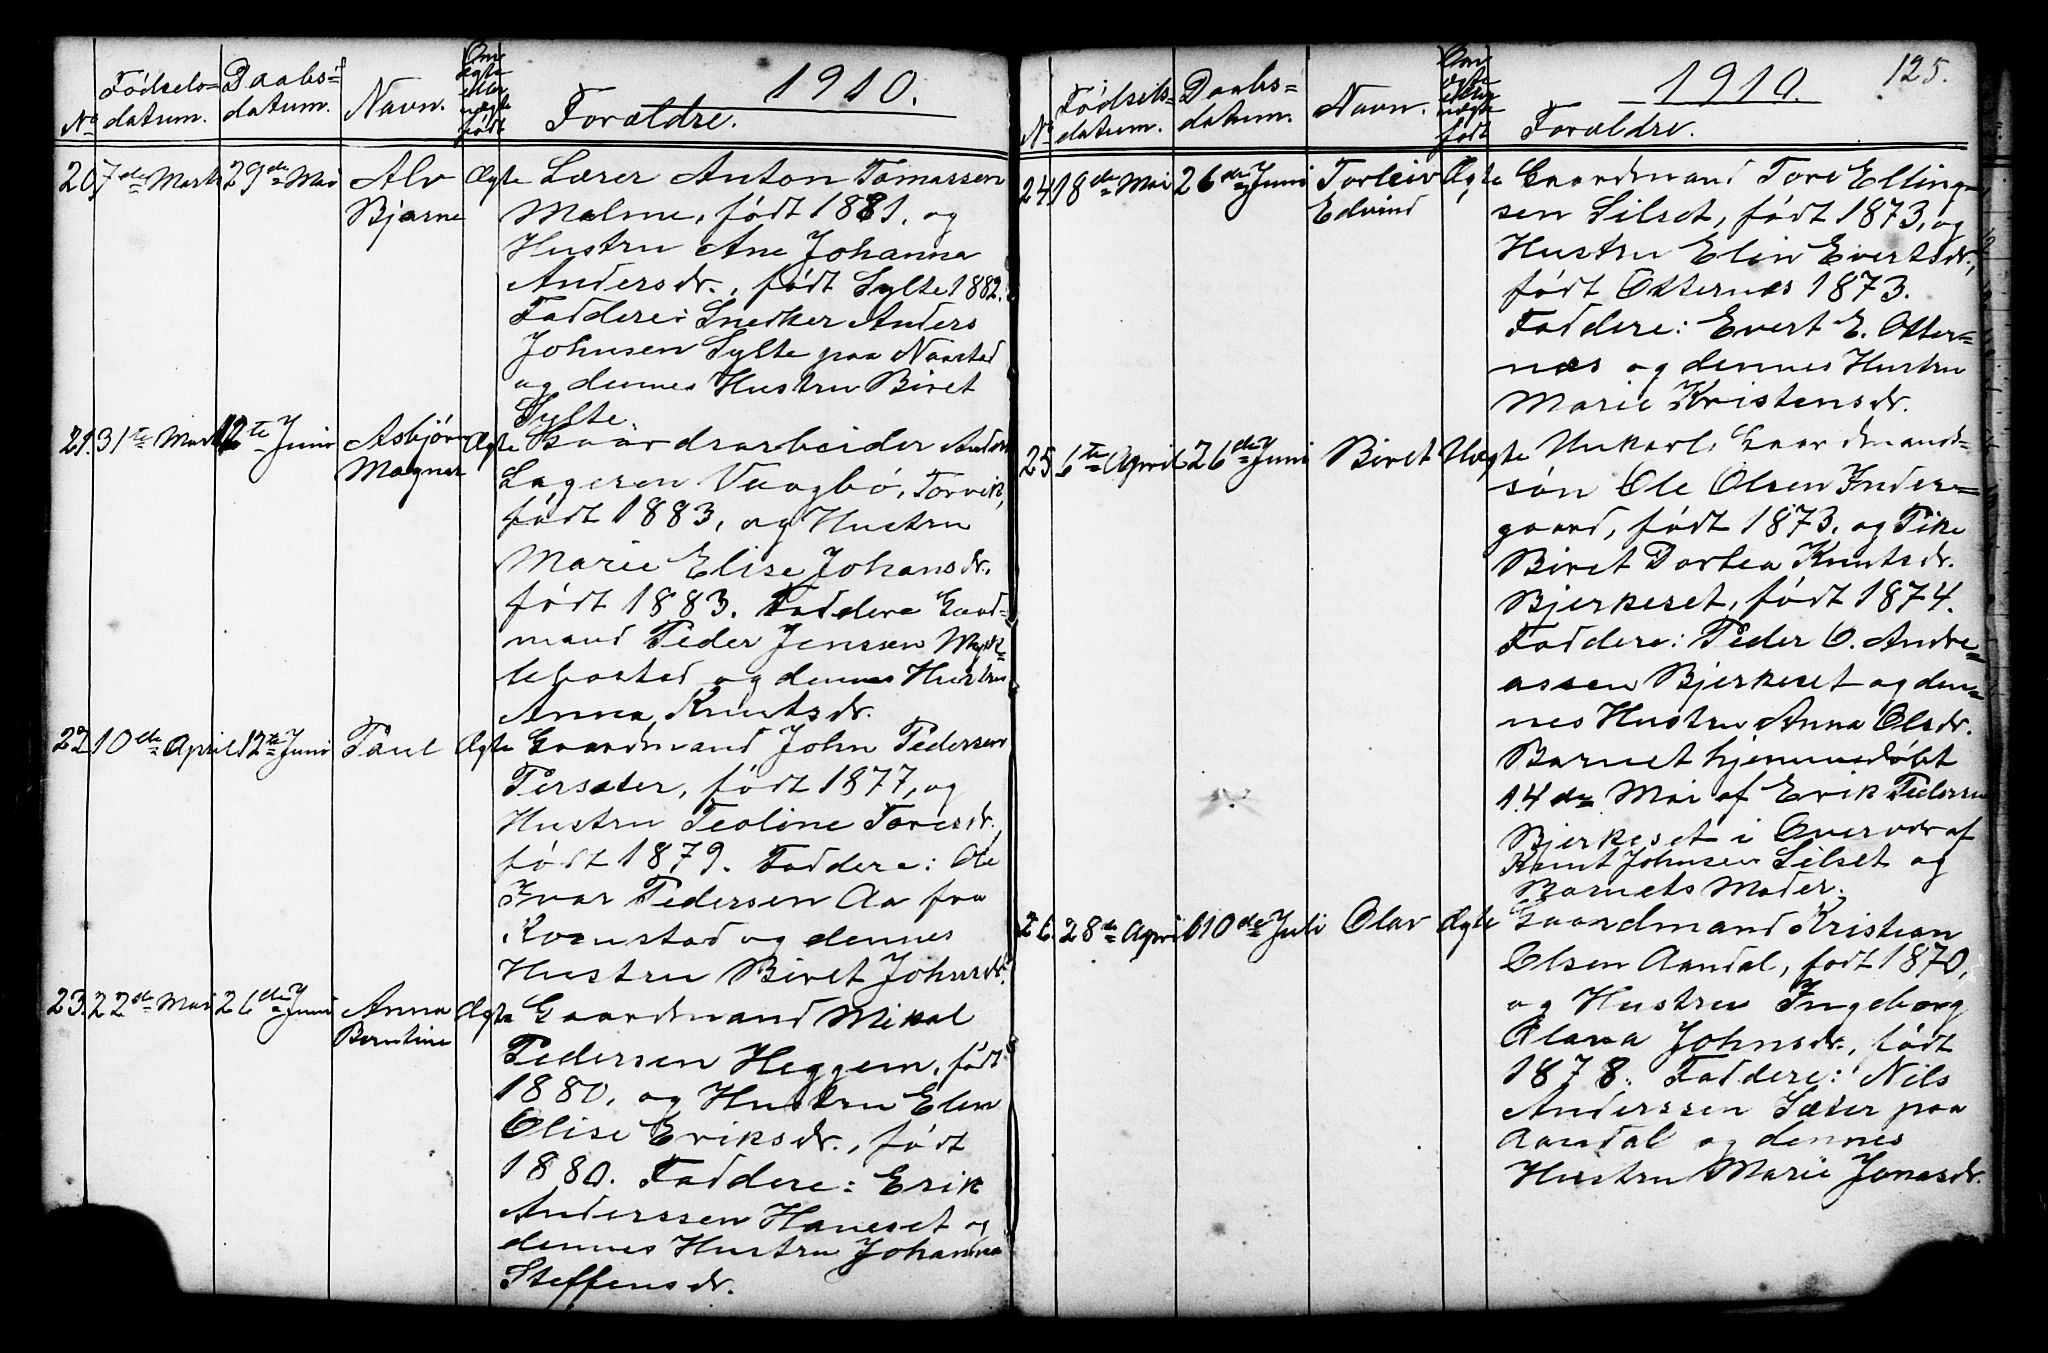 1910.
No
Fødsels=
datum.
Daabs=
datum.
Navn.
Om
ægte
eller
uægte
født
Forældre.
20. 7de Marts 29de Mai Alv Ægte Lærer Anton Tomassen
Bjarne Malme, født 1881, og
Hustru Ane Johanna
Andersdr., født Sylte 1882.
Faddere: Snedker Anders
Johnsen Sylte paa Naastad
og dennes Hustru Biret
Sylte.
21. 31te Marts 12te Juni Asbjørn Ægte Gaardsarbeider Anders
Magnar Lageren Vaagbø, Torvik,
født 1883, og Hustru
Marie Elise Johansdr.
født 1883. Faddere Gaard=
mand Peder Jenssen Myk=
lebostad og dennes Hustru
Anna Knutsdr.
22. 10de April 12te Juni Paul Ægte Gaardmand John Pedersen
Persæter, født 1877, og
Hustru Teoline Toresdr.,
født 1879. Faddere: Ole
Ivar Pedersen Aa fra
Kornstad og dennes
Hustru Biret Johnsdr.
23. 22de Mai 26de Juni Anna Ægte Gaardmand Mikal
Berntine Pedersen Heggem, født
1880, og Hustru Elen
Olise Eriksdr., født
1880. Faddere: Erik
Anderssen Haneset og
dennes Hustru Johanna
Steffensdr.
1910. 125.
No
Fødsels=
datum.
Daabs=
datum.
Navn.
Om
ægte
eller
uægte
født
Forældre.
24. 18de Mai 26de Juni Torleiv Ægte Gaardmand Tore Elling=
Edvind sen Silset, født 1873, og
Hustru Elin Evertsdr.,
født Otternæs 1873.
Faddere: Evert E. Otter=
næs og dennes Hustru
Marie Kristensdr.
25. 6te April 26de Juni Biret Uægte Unkarl, Gaardmands=
søn Ole Olsen Inder=
gaard, født 1873, og Pike
Biret Dortea Knutsdr.
Bjerkeset, født 1874.
Faddere: Peder O. Andre=
assen Bjerkeset og den=
nes Hustru Anna Olsdr.
Barnet hjemmedøbt
14de Mai af Erik Pedersen
Bjerkeset i Overvær af
Knut Johnsen Silset og
Barnets Moder.
26. 28de April 10de Juli Olav Ægte Gaardmand Kristian
Olsen Aandal, født 1870,
og Hustru Ingeborg
Olava Johnsdr., født
1878. Faddere: Nils
Anderssen Sæter paa
Aandal og dennes
Hustru Marie Jonasdr.